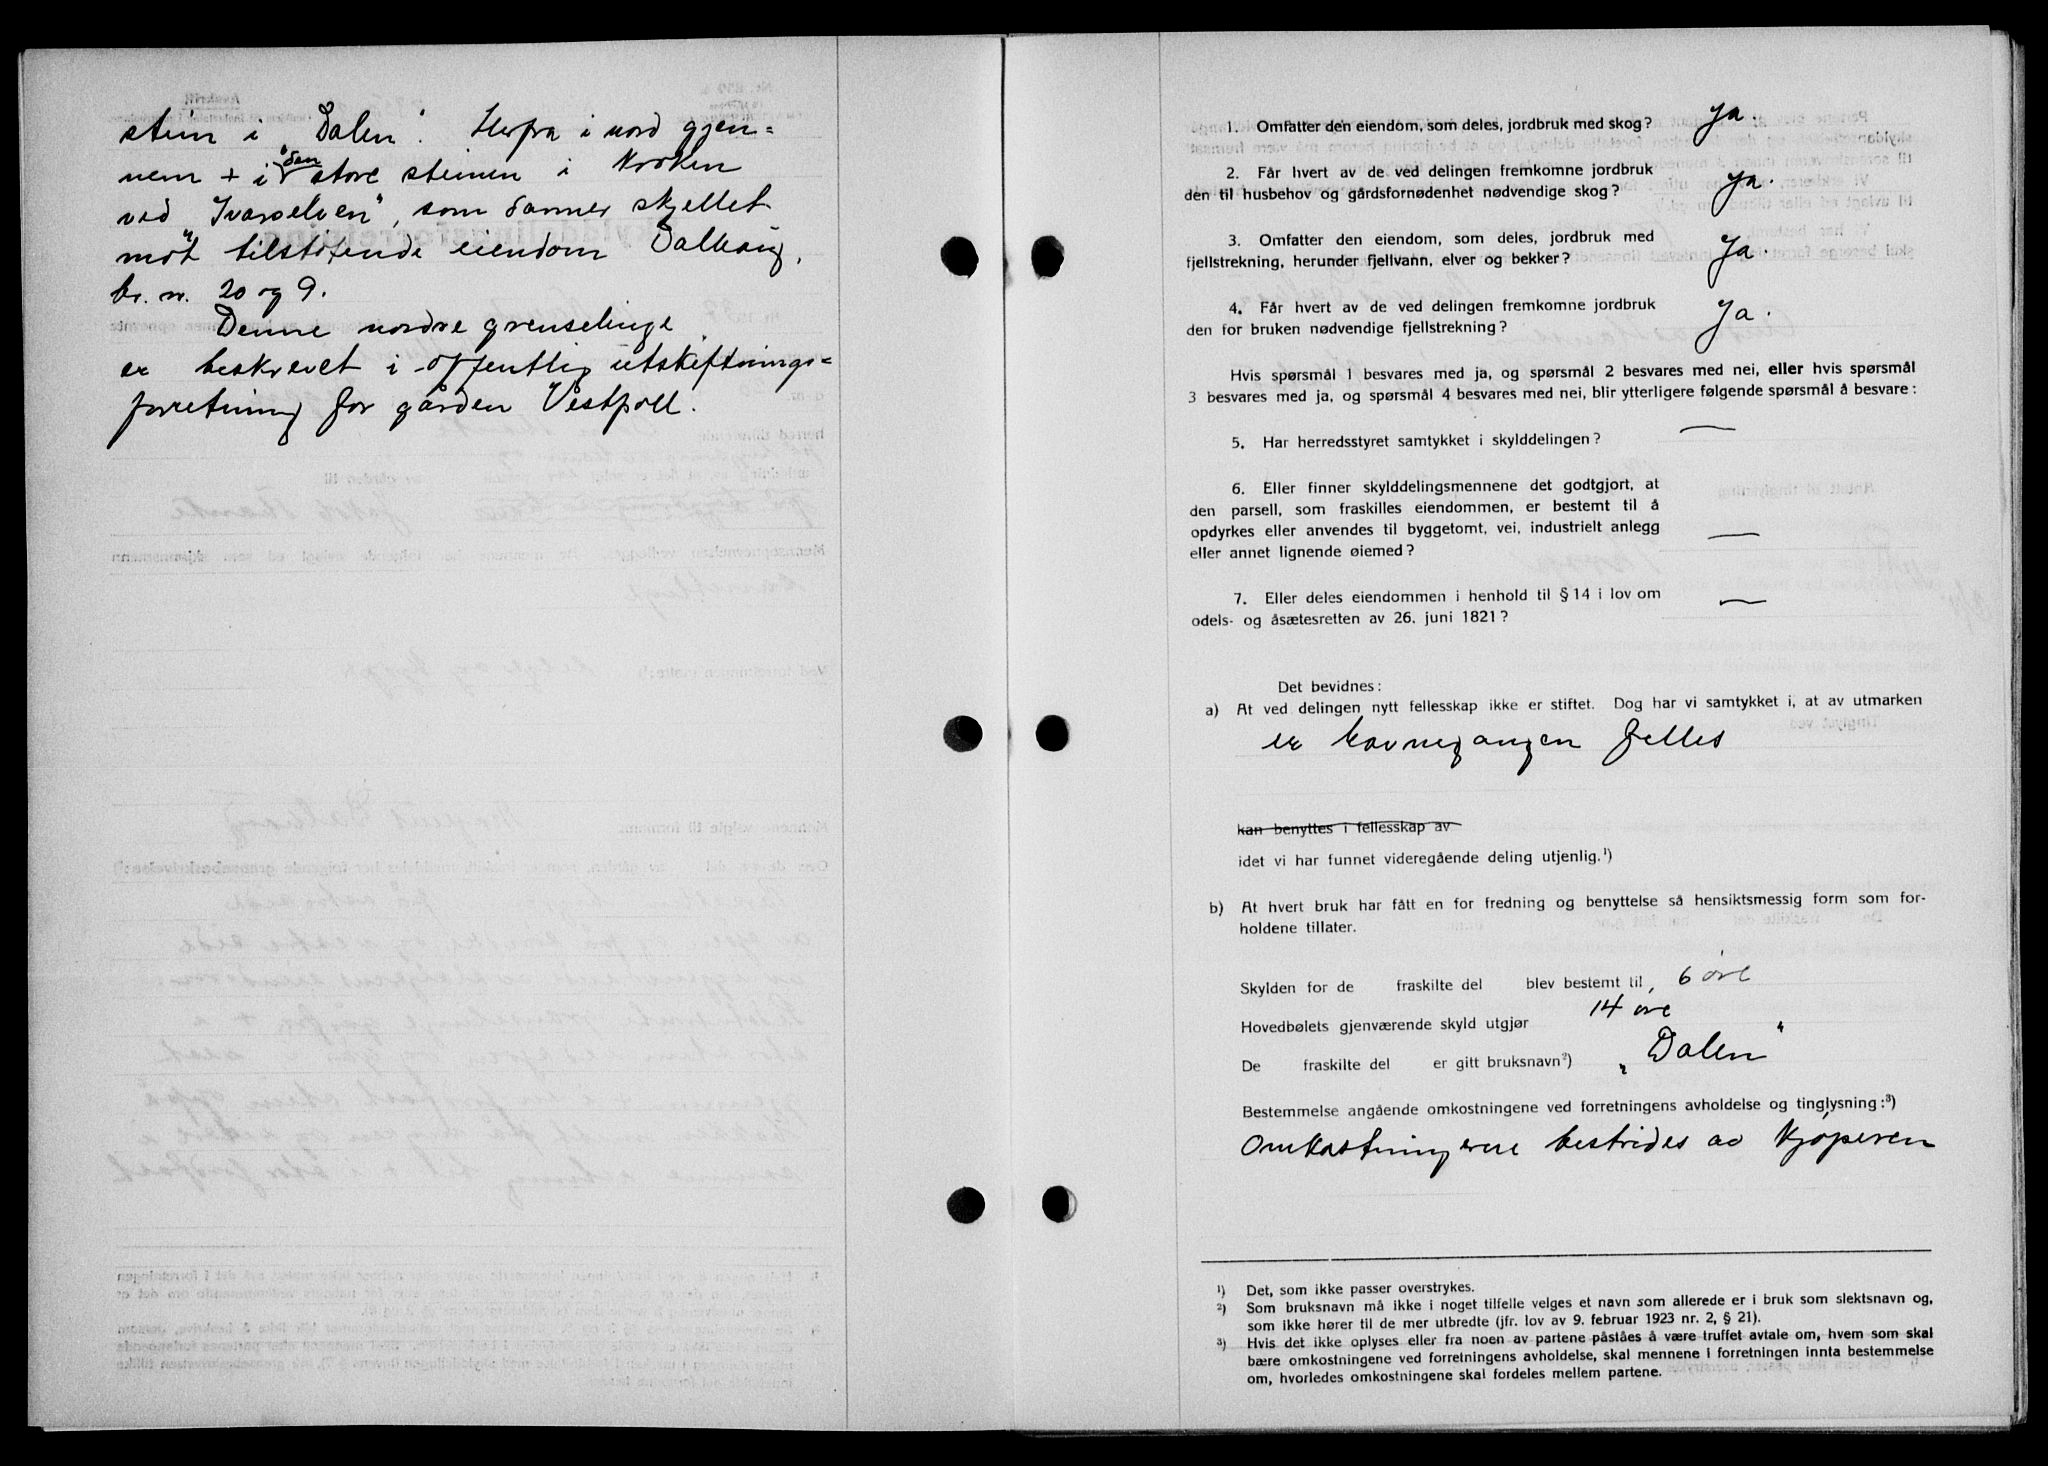 stein i "Dalen". Herfra i nord gjen=
nem + i den store steinen i Kroken
ved "Ivarselven", som danner skjellet
mot tilstøtende eiendom Dalhaug,
br. nr. 20 og 9.
Denne nordre grenselinje
er beskrevet i offentlig utskiftnings=
forretning for gården Vestpoll.
1. Omfatter den eiendom, som deles, jordbruk med skog? Ja.
2. Får hvert av de ved delingen fremkomne jordbruk
den til husbehov og gårdsfornødenhet nødvendige skog? Ja.
3. Omfatter den eiendom, som deles, jordbruk med
fjellstrekning, herunder fjellvann, elver og bekker? Ja.
4. Får hvert av de ved delingen fremkomne jordbruk
den for bruken nødvendige fjellstrekning? Ja.
Hvis spørsmål 1 besvares med ja, og spørsmål 2 besvares med nei, eller hvis spørsmål
3 besvares med ja, og spørsmål 4 besvares med nei, blir ytterligere følgende spørsmål å besvare:
5. Har herredsstyret samtykket i skylddelingen? —
6. Eller finner skylddelingsmennene det godtgjort, at
den parsell, som fraskilles eiendommen, er bestemt til å
opdyrkes eller anvendes til byggetomt, vei, industrielt anlegg
eller annet lignende øiemed? —
7. Eller deles eiendommen i henhold til § 14 i lov om
odels- og åsætesretten av 26. juni 1821? —
Det bevidnes:
a) At ved delingen nytt fellesskap ikke er stiftet. Dog har vi samtykket i, at av utmarken
er havnegangen felles
kan benyttes i fellesskap av
idet vi har funnet videregående deling utjenlig.¹)
b) At hvert bruk har fått en for fredning og benyttelse så hensiktsmessig form som for-
holdene tillater.
Skylden for de fraskilte del blev bestemt til, 6 øre
Hovedbølets gjenværende skyld utgjør 14 øre
De fraskilte del er gitt bruksnavn²) "Dalen"
Bestemmelse angående omkostningene ved forretningens avholdelse og tinglysning:³)
Omkostningerne bestrides av kjøperen
¹) Det, som ikke passer overstrykes.
²) Som bruksnavn må ikke i noget tilfelle velges et navn som allerede er i bruk som slektsnavn og,
som ikke hører til de mer utbredte (jfr. lov av 9. februar 1923 nr. 2, § 21).
³) Hvis det ikke oplyses eller fra noen av partene påståes å være truffet avtale om, hvem som skal
bære omkostningene ved forretningens avholdelse, skal mennene i forretningen innta bestemmelse
om, hvorledes omkostningene skal fordeles mellem partene.